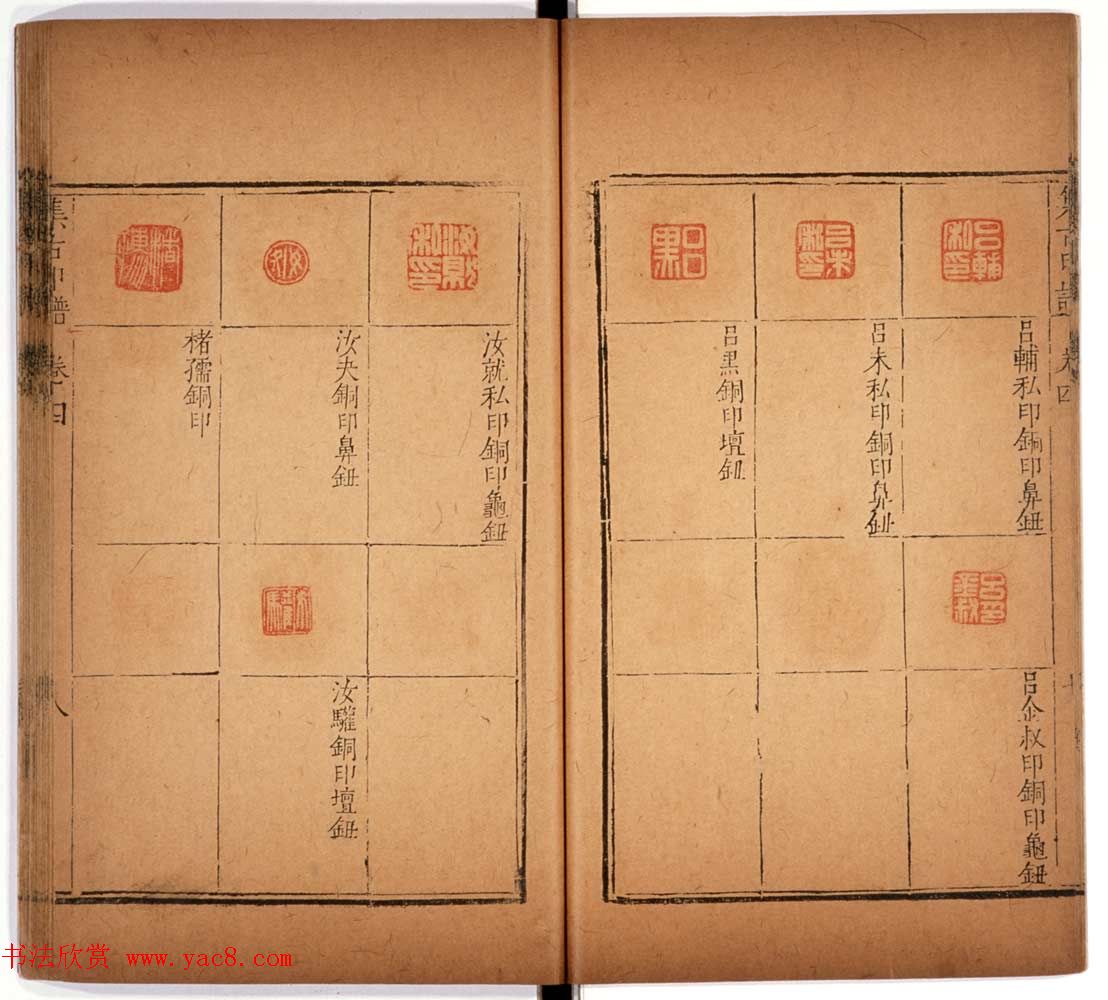 呂輔私印銅印鼻鈕
呂未私印銅印鼻鈕
呂黒銅印壇鈕
呂金叔印銅印龜鈕
汝就私印銅印龜鈕
汝夫銅印鼻鈕
楮孺銅印
汝驩銅印壇鈕
集古印譜
卷四
八
书法欣赏 www.yac8.com